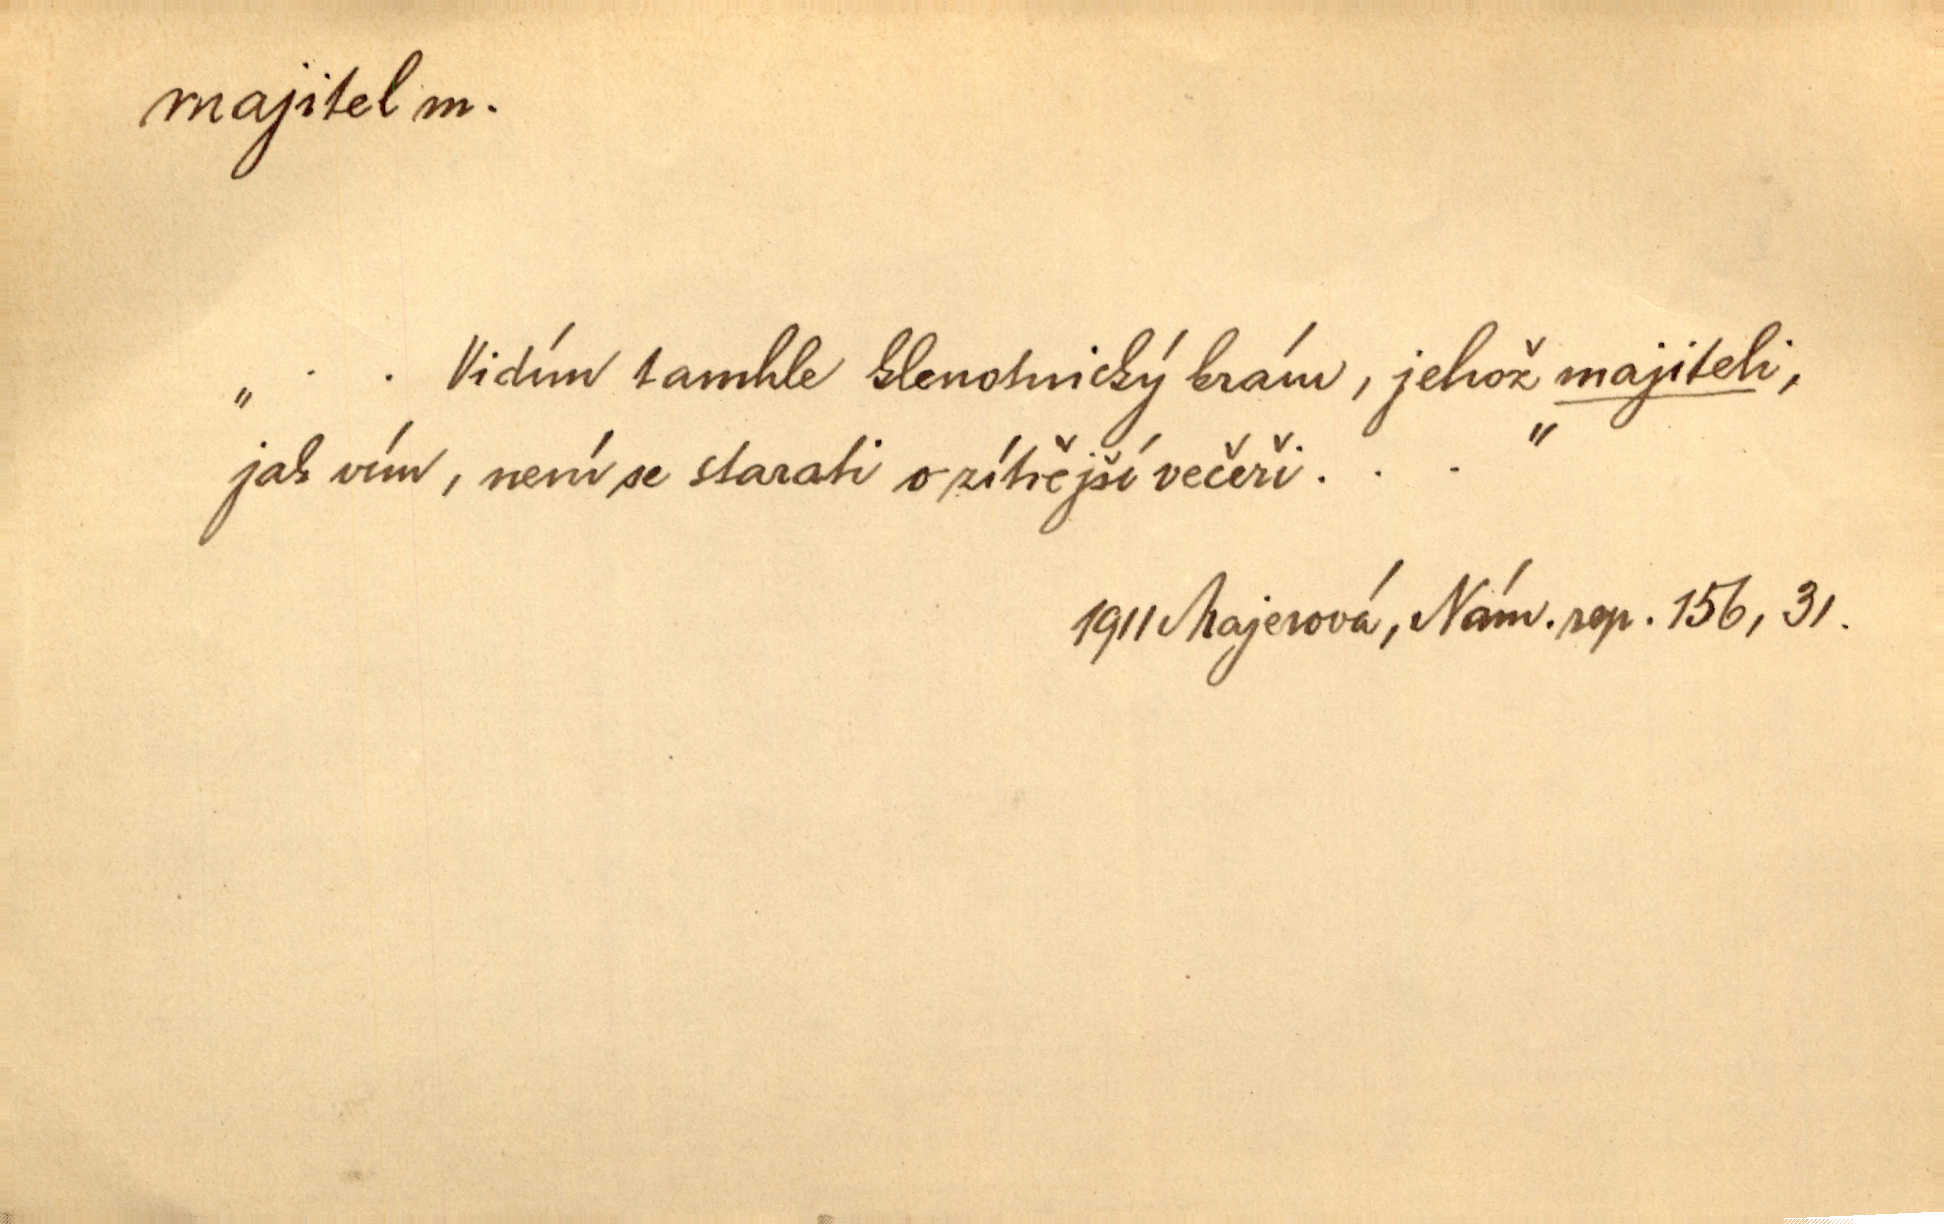 majitel m.
„ . . Vidím tamhle klenotnický krám, jehož majiteli,
jak vím, není se starati o zítřejší večeři. . . "
1911 Majerová, Nám. rep. 156, 31.